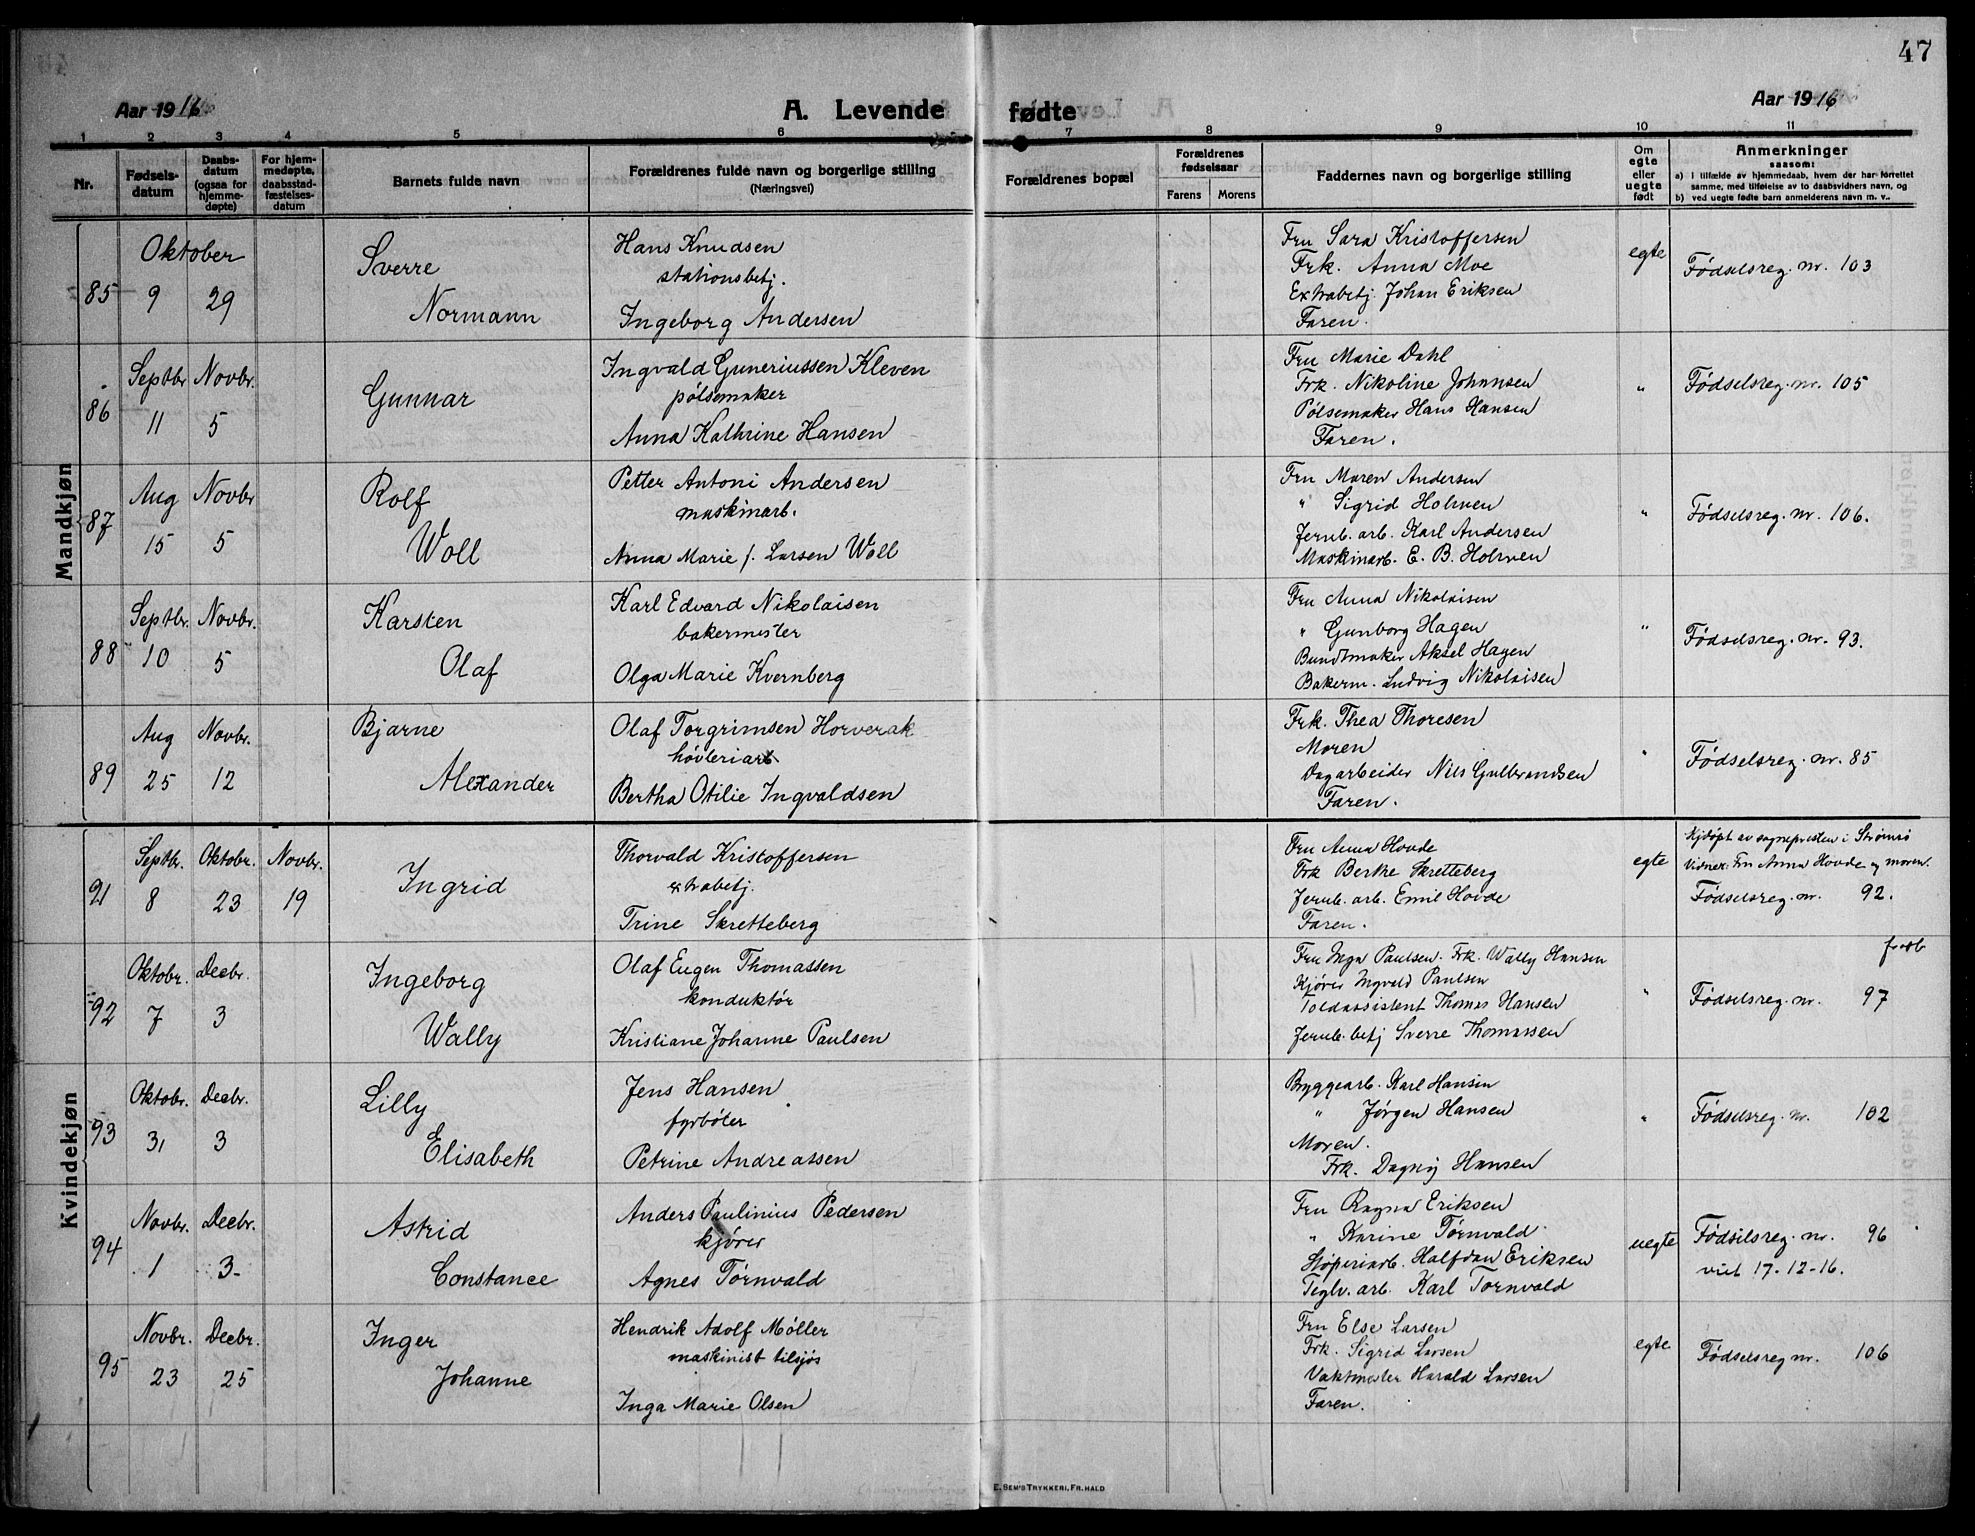 47
Aar 1916
A. Levende fødte
Aar 1916
1 2 3 4 5 6 7 8 9 10 11
Nr.
Fødsels-
datum
Daabs-
datum
(ogsaa for
hjemme-
døpte)
For hjem-
medøpte,
daabsstad-
fæstelses-
datum
Barnets fulde navn
Forældrenes fulde navn og borgerlige stilling
(Næringsvei)
Forældrenes bopæl
Forældrenes
fødselsaar
Farens Morens
Faddernes navn og borgerlige stilling
Om
egte
eller
uegte
født
Anmerkninger
saasom:
a) I tilfælde av hjemmedaab, hvem der har forrettet
samme, med tilføielse av to daabsvidners navn, og
b) ved uegte fødte barn anmelderens navn m. v..
Mandkjøn
85
Oktober
9 29
Sverre
Normann
Hans Knudsen
stationsbetj.
Ingeborg Andersen
Fru Sara Kristoffersen
Frk. Anna Moe
Extrabetj. Johan Eriksen
Faren.
egte
Fødselsreg. nr. 103
86
Septbr. Novbr.
11 5
Gunnar
Ingvald Guneriussen Kleven
pølsemaker
Anna Kathrine Hansen
Fru Marie Dahl
Frk. Nikoline Johansen
Pølsemaker Hans Hansen
Faren.
"
Fødselsreg. nr. 105
87
Aug Novbr
15 5
Rolf
Woll
Petter Antoni Andersen
maskinarb.
Anna Marie f. Larsen Woll
Fru Maren Andersen
" Sigrid Holmen
Jernb. arb. Karl Andersen
Maskinarb. E. B. Holmen
"
Fødselsreg. nr. 106.
88
Septbr. Novbr.
10 5
Karsten
Olaf
Karl Edvard Nikolaisen
bakermester
Olga Marie Kvernberg
Fru Anna Nikolaisen
" Gunborg Hagen
Bundtmaker Aksel Hagen
Bakerm. Ludvig Nikolaisen
"
Fødselsreg. nr. 93.
89
Aug Novbr.
25 12
Bjarne
Alexander
Olaf Torgrimsen Horverak
høvleriarb
Bertha Otilie Ingvaldsen
Frk. Thea Thoresen
Moren
Dagarbeider Nils Gulbrandsen
Faren.
"
Fødselsreg. nr. 85
Kvindekjøn
91
Septbr. Oktobr. Novbr.
8 23 19
Ingrid
Thorvald Kristoffersen
extrabetj.
Trine Skretteberg
Fru Anna Hovde
Frk Berthe Skretteberg
Jernb. arb. Emil Hovde
Faren.
egte
Hjdøpt av sognepresten i Strømsø
Vidner: Fru Anna Hovde og moren.
Fødselsreg. nr. 92.
92
Oktobr. Decbr.
7 3
Ingeborg
Wally
Olaf Eugen Thomassen
konduktør
Kristiane Johanne Paulsen
Fru Inga Paulsen. Frk. Wally Hansen
Kjører Ingvald Paulsen
Toldassistent Thomas Hansen
Jernb. betj Sverre Thomassen
"
Fødselsreg. nr. 97
93
Oktobr. Decbr.
31 3
Lilly
Elisabeth
Jens Hansen
fyrbøter
Petrine Andreassen
Byggearb. Karl Hansen
" Jørgen Hansen
Moren.
Frk. Dagny Hansen
"
Fødselsreg. nr. 102
94
Novbr. Decbr.
1 3
Astrid
Constance
Anders Paulinius Pedersen
kjører
Agnes Tørnvald
Fru Ragna Eriksen
" Karine Tørnvald
Støperiarb. Halfdan Eriksen
Teglv. arb. Karl Tornvald
uegte
Fødselsreg. nr. 96
viet 17-12-16.
95
Novbr. Decbr.
23 25
Inger
Johanne
Hendrik Adolf Møller
maskinist tilsjøs
Inga Marie Olsen
Fru Else Larsen
Frk. Sigrid Larsen
Vaktmester Harald Larsen
Faren.
egte
Fødselsreg nr. 106
E. SEM'S TRYKKERI, FR. HALD